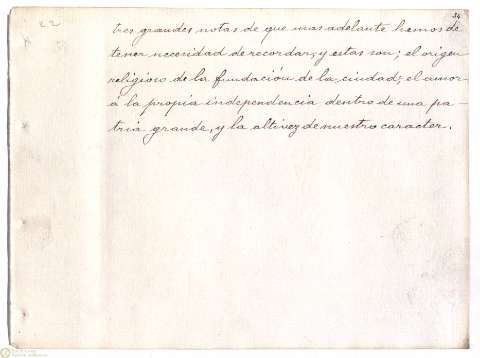 34.
22
tres grandes notas de que mas adelante hemos de
tener necesidad de recordar, y estas son; el origen
religioso de la fundación de la ciudad; el amor
á la propia independencia dentro de una pa-
tria grande, y la altivez de nuestro caracter.